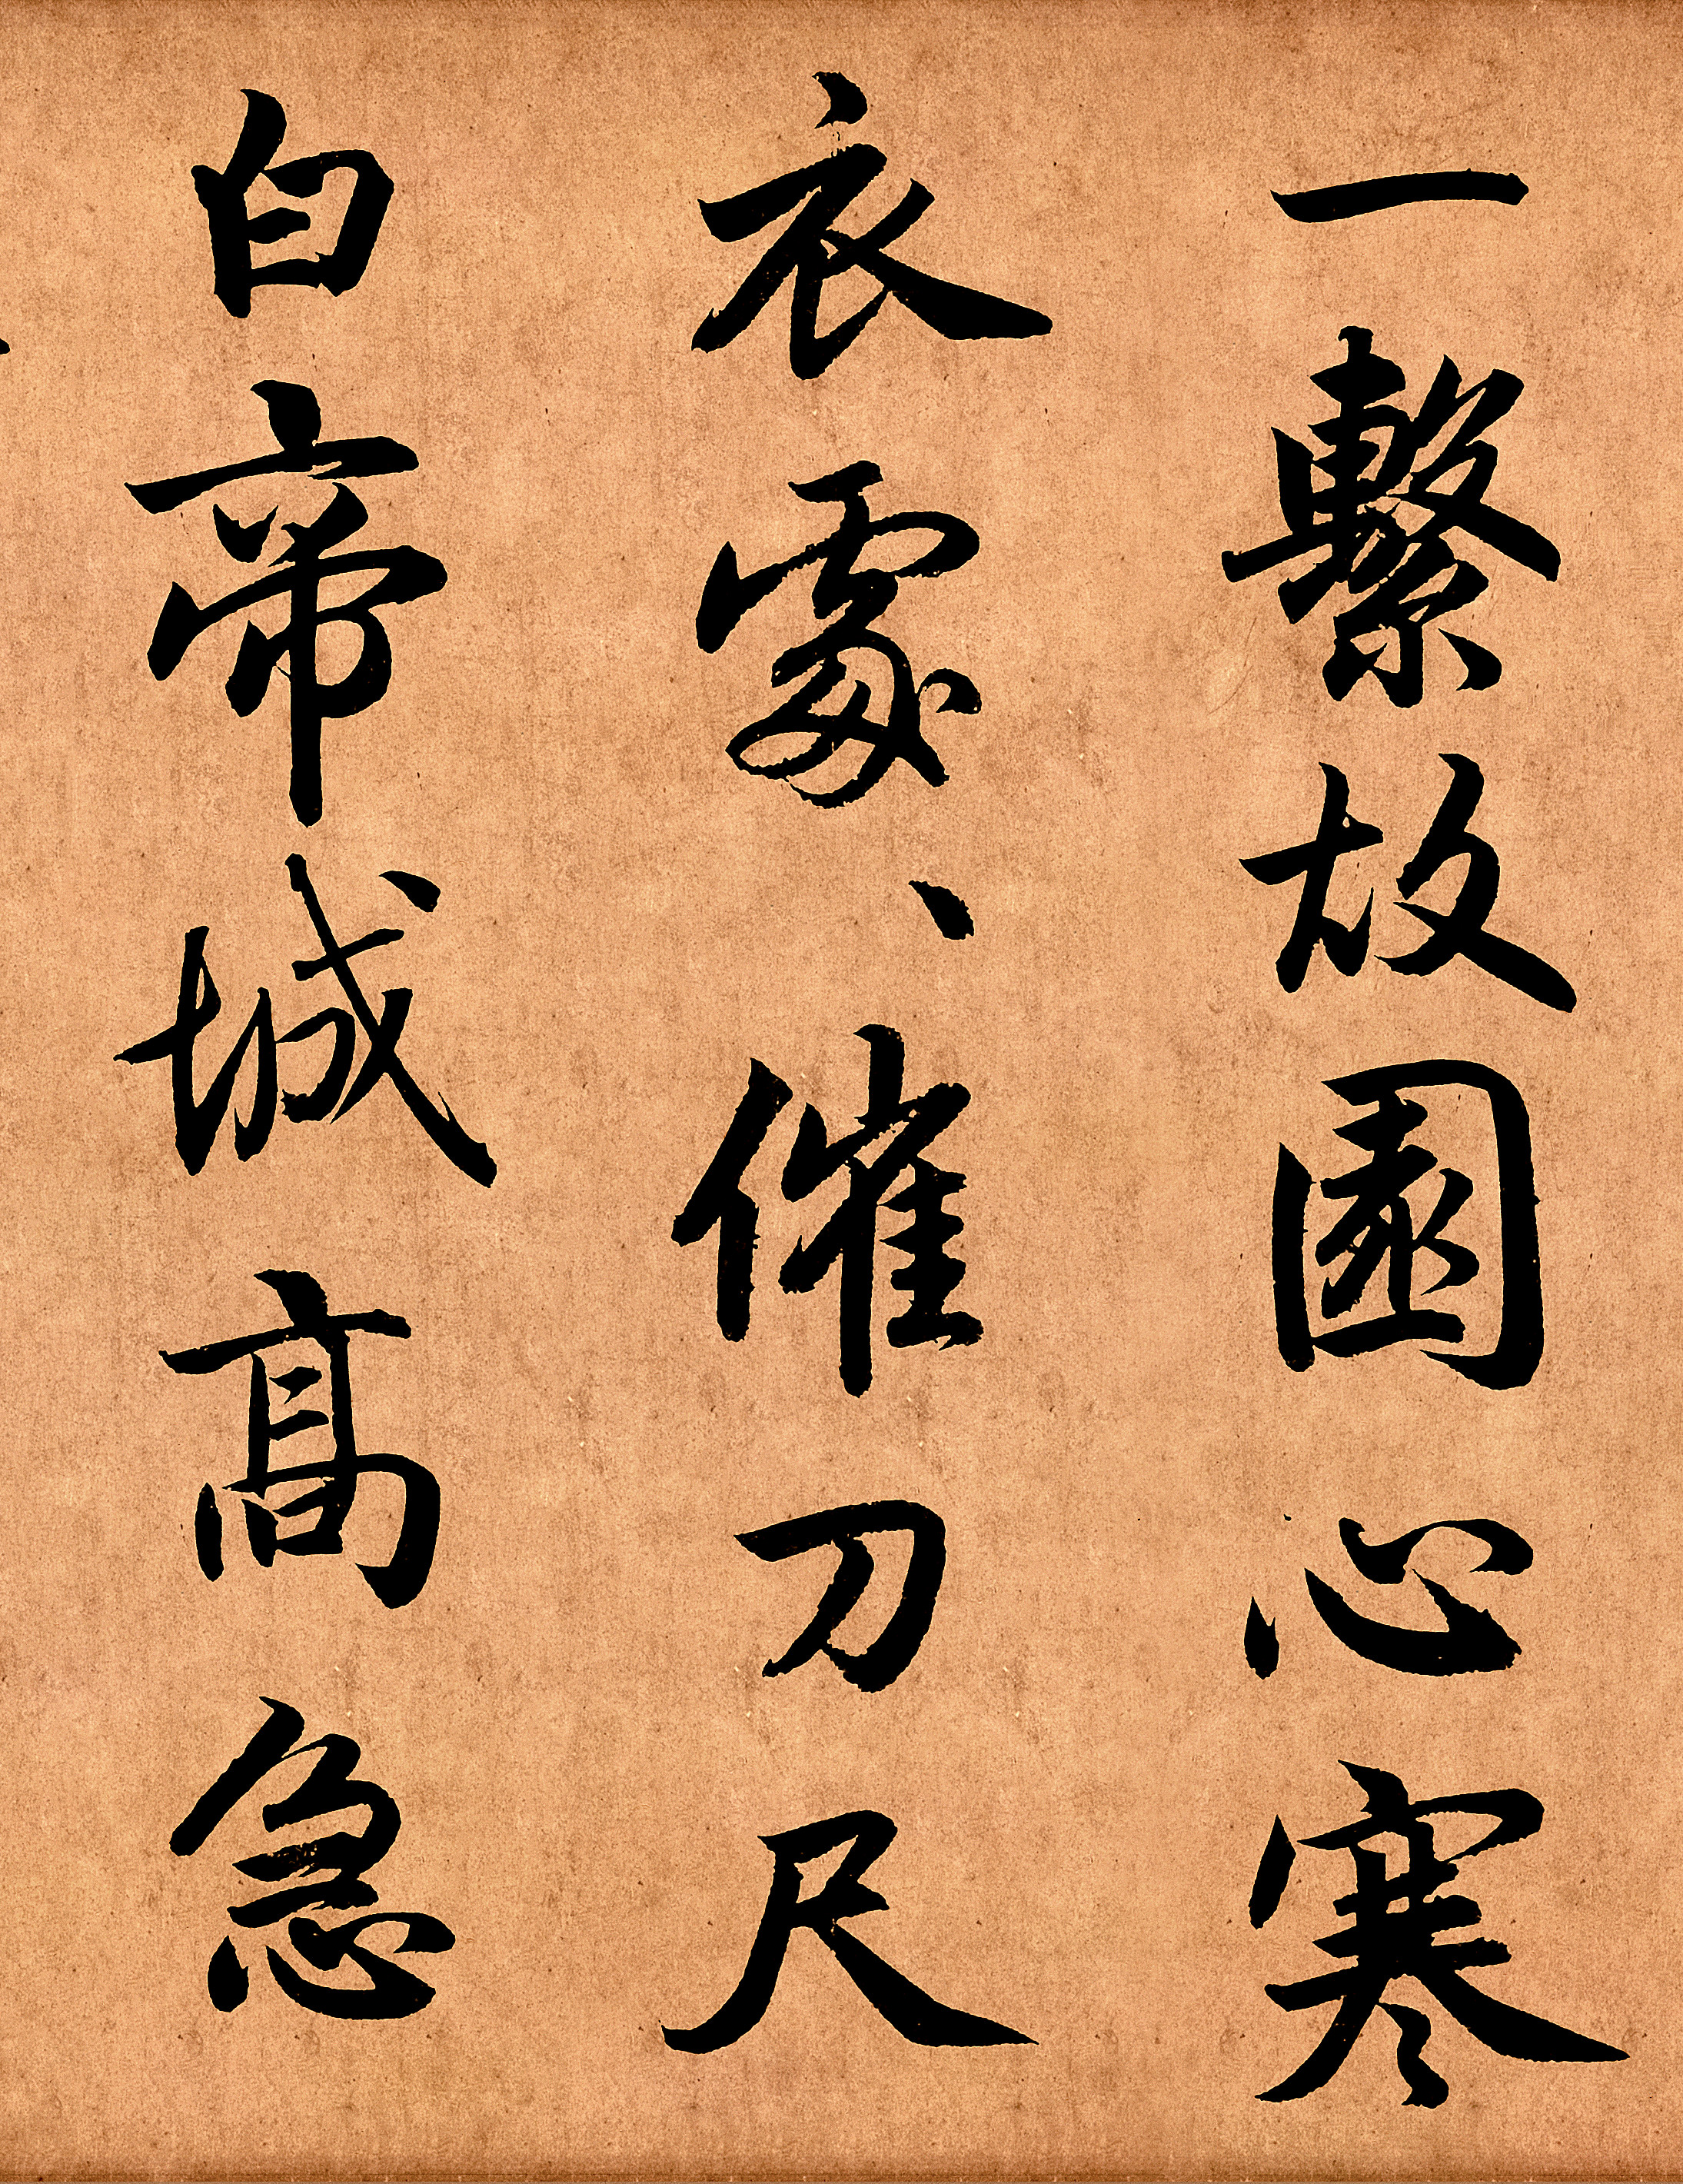 一繫故園心寒
衣處、催刀尺
白帝城高急